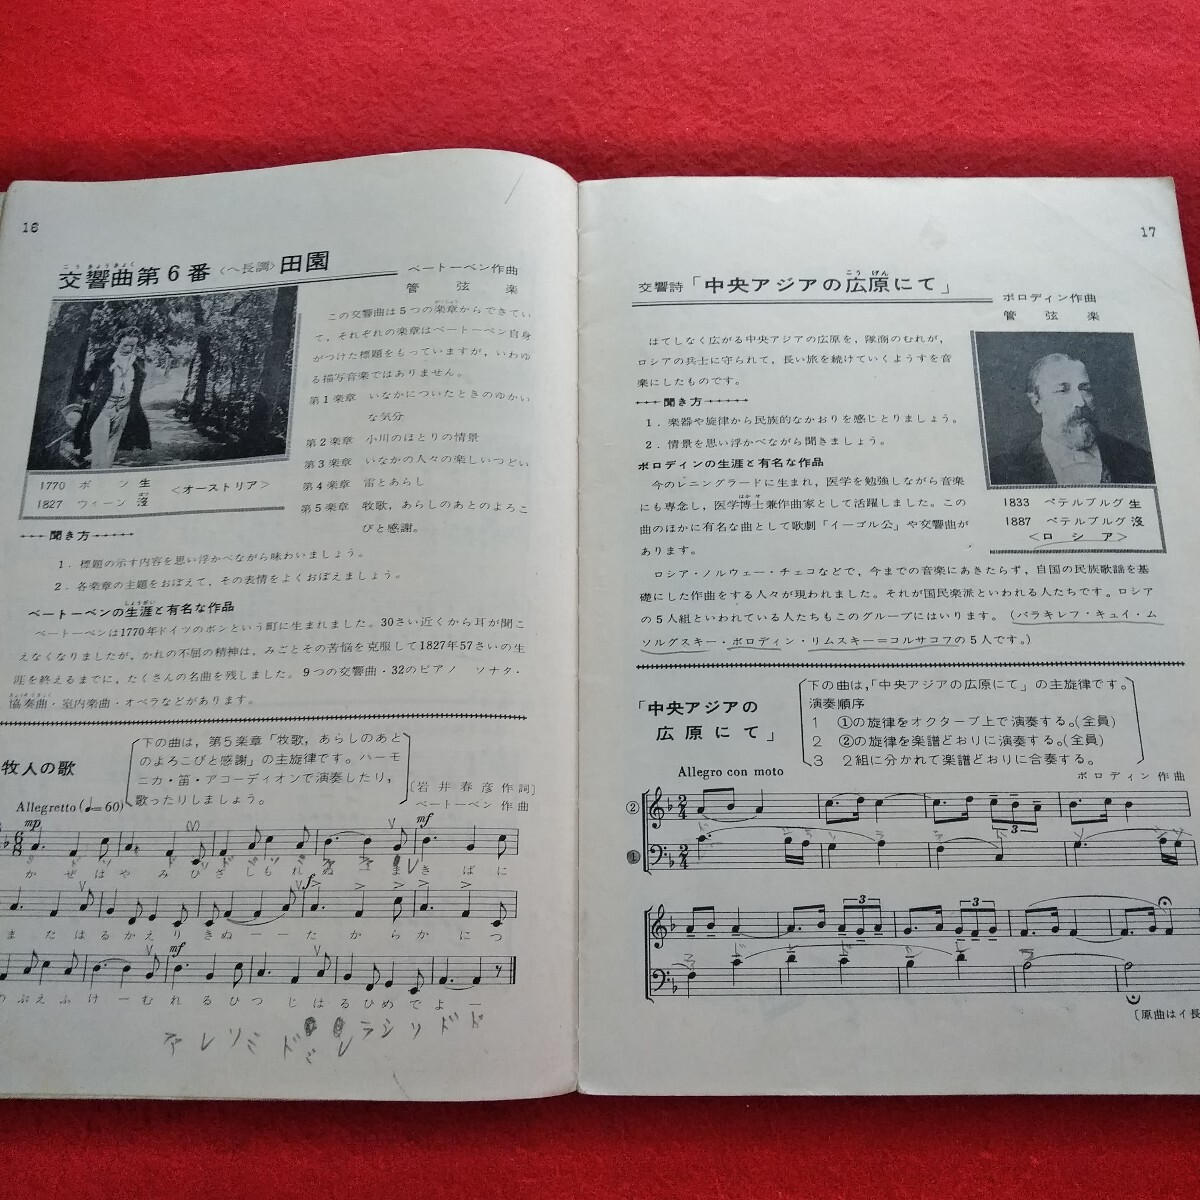 16
交響曲第6番〈ヘ長調〉田園
こうきょうきょく
ベートーベン作曲
管弦楽
この交響曲は5つの楽章からできてい
て，それぞれの楽章はベートーベン自身
がつけた標題をもっていますが，いわゆ
る描写音楽ではありません。
第1楽章 いなかについたときのゆかい
な気分
第2楽章 小川のほとりの情景
第3楽章 いなかの人々の楽しいつどい
第4楽章 雷とあらし
第5楽章 牧歌，あらしのあとのよろこ
びと感謝。
1770 ボン 生
1827 ウィーン 没
〈オーストリア〉
聞き方
1．標題の示す内容を思い浮かべながら味わいましょう。
2．各楽章の主題をおぼえて，その表情をよくおぼえましょう。
ベートーベンの生涯と有名な作品
ベートーベンは1770年ドイツのボンという町に生まれました。30さい近くから耳が聞こ
えなくなりましたが，かれの不屈の精神は，みごとその苦悩を克服して1827年57さいの生
涯を終えるまでに，たくさんの名曲を残しました。9つの交響曲・32のピアノ ソナタ・
協奏曲・室内楽曲・オペラなどがあります。
牧人の歌
下の曲は，第5楽章「牧歌，あらしのあと
のよろこびと感謝」の主旋律です。ハーモ
ニカ・笛・アコーディオンで演奏したり，
歌ったりしましょう。
〔岩井春彦作詞〕
ベートーベン 作曲
Allegretto (♩.=60)
mp
mf
かぜはやみひざしもれぬまきばに
f
またはるかえりきぬーーたからかにつ
mf
のぶえふけーむれるひつじはるひめでよー
17
交響詩「中央アジアの広原にて」
こうげん
ボロディン作曲
管弦楽
はてしなく広がる中央アジアの広原を，隊商のむれが，
ロシアの兵士に守られて，長い旅を続けていくようすを音
楽にしたものです。
聞き方
1．楽器や旋律から民族的なかおりを感じとりましょう。
2．情景を思い浮かべながら聞きましょう。
ボロディンの生涯と有名な作品
今のレニングラードに生まれ，医学を勉強しながら音楽
にも専念し，医学博士兼作曲家として活躍しました。この
曲のほかに有名な曲として歌劇「イーゴル公」や交響曲が
あります。
1833 ペテルブルグ 生
1887 ペテルブルグ 没
〈ロシア〉
ロシア・ノルウェー・チェコなどで，今までの音楽にあきたらず，自国の民族歌謡を基
礎にした作曲をする人々が現われました。それが国民楽派といわれる人たちです。ロシア
の5人組といわれている人たちもこのグループにはいります。（バラキレフ・キュイ・ム
ソルグスキー・ボロディン・リムスキー＝コルサコフの5人です。）
「中央アジアの
広原にて」
下の曲は，「中央アジアの広原にて」の主旋律です。
演奏順序
1 ①の旋律をオクターブ上で演奏する。(全員)
2 ②の旋律を楽譜どおりに演奏する。(全員)
3 2組に分かれて楽譜どおりに合奏する。
ボロディン 作曲
Allegro con moto
②
①
〔原曲はイ長